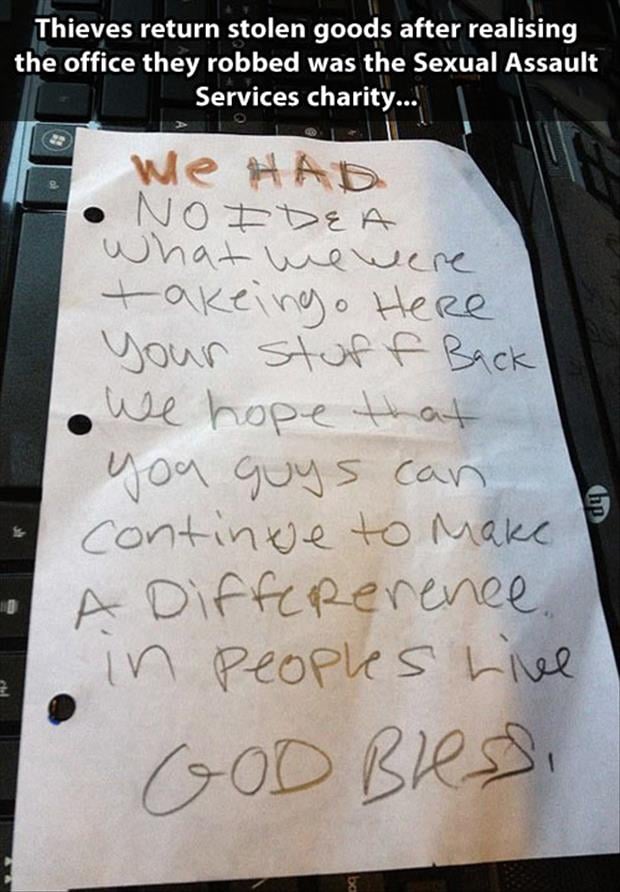 Thieves return stolen goods after realising
the office they robbed was the Sexual Assault
Services charity...
We HAD
NO IDEA
what we were
takeing. Here
your stuff Back
we hope that
you guys can
continue to Make
A Differerence.
in peoples Live
GOD Bless.
hp